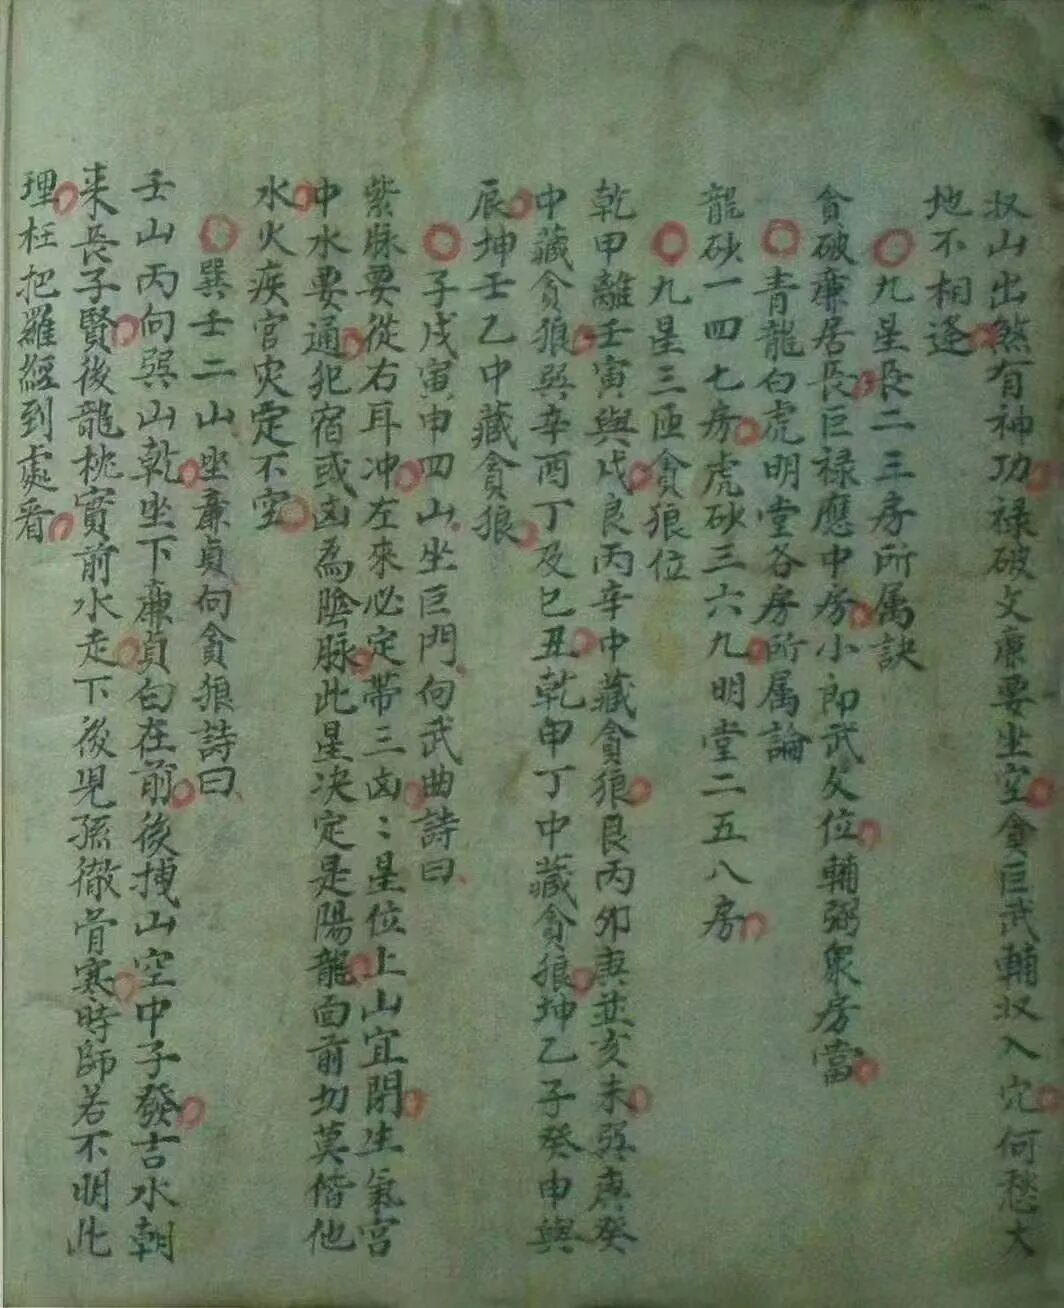 収山出煞有神功祿破文廉要坐空貪巨武輔収入穴何愁大
地不相逢
九星長二三房所属訣
貪破廉居長巨祿應中房小郎武文位輔弼衆房當
青龍白虎明堂各房所属論
龍砂一四七房虎砂三六九明堂二五八房
九星三匝貪狼位
乾甲離壬寅與戌艮丙辛中藏貪狼艮丙卯庚並亥未巽庚癸
中藏貪狼巽辛酉丁及巳丑乾甲丁中藏貪狼坤乙子癸申與
辰坤壬乙中藏貪狼
子戌寅申四山坐巨門向武曲詩曰
紫脉要從右耳冲左來必定帶三凶〻星位上山宜閉生氣宮
中水要通犯宿或凶為陰脉此星决定是陽龍面前切莫偕他
水火疾官灾定不空
巽壬二山坐廉貞向貪狼詩曰
壬山丙向巽山乾坐下廉貞向在前後摶山空中子發吉水朝
来長子賢後龍桃實前水走下後児孫徹骨寒時師若不明此
理枉把羅經到處看